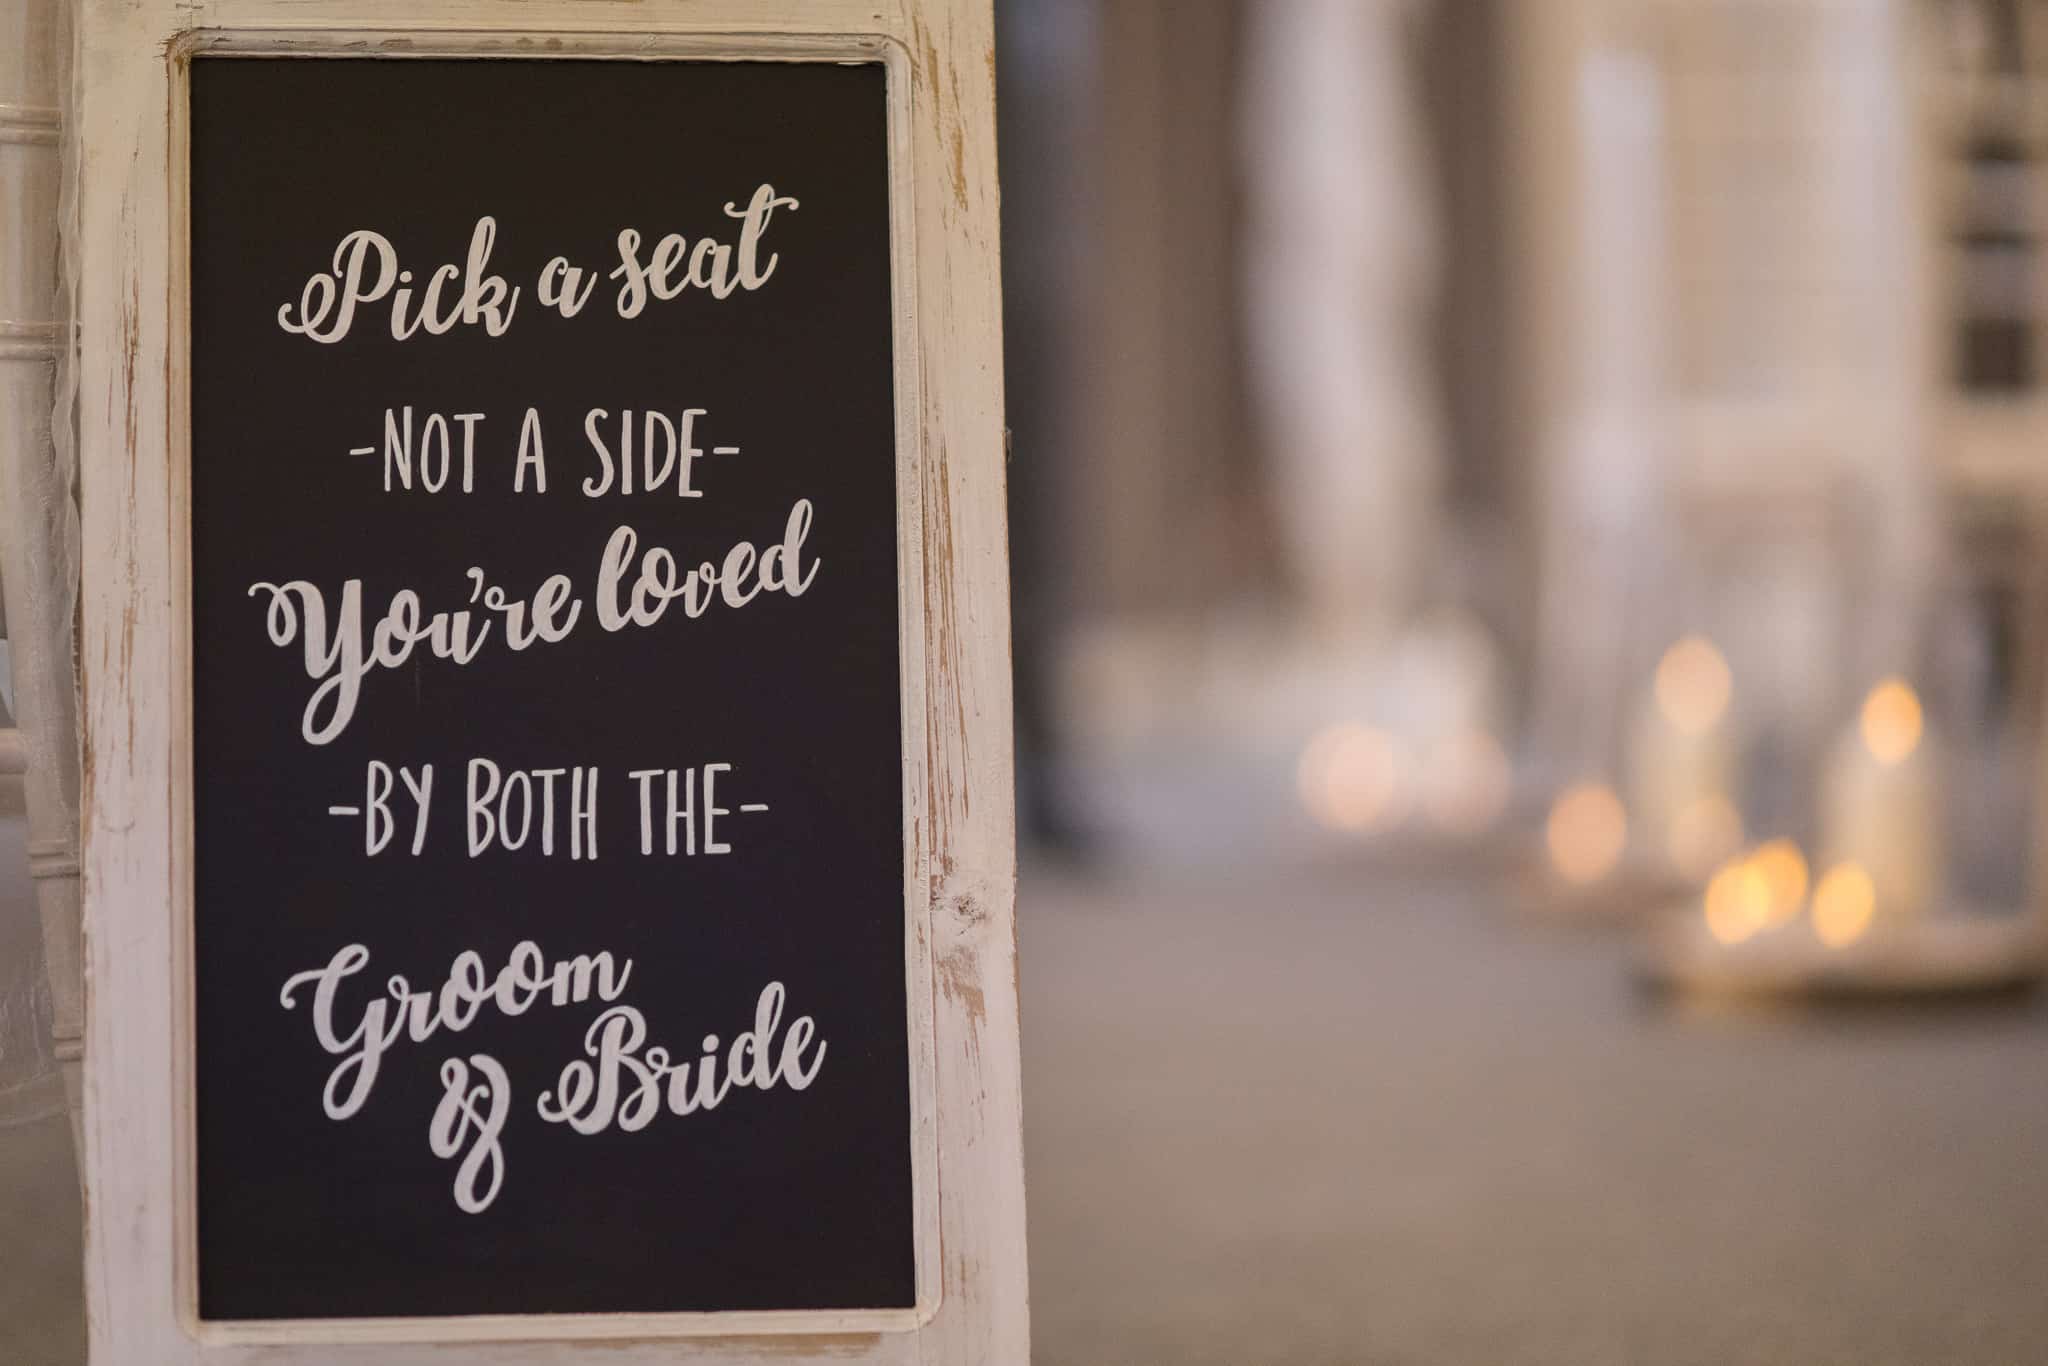 Pick a seat
-NOT A SIDE-
You're loved
-BY BOTH THE-
Groom
& Bride